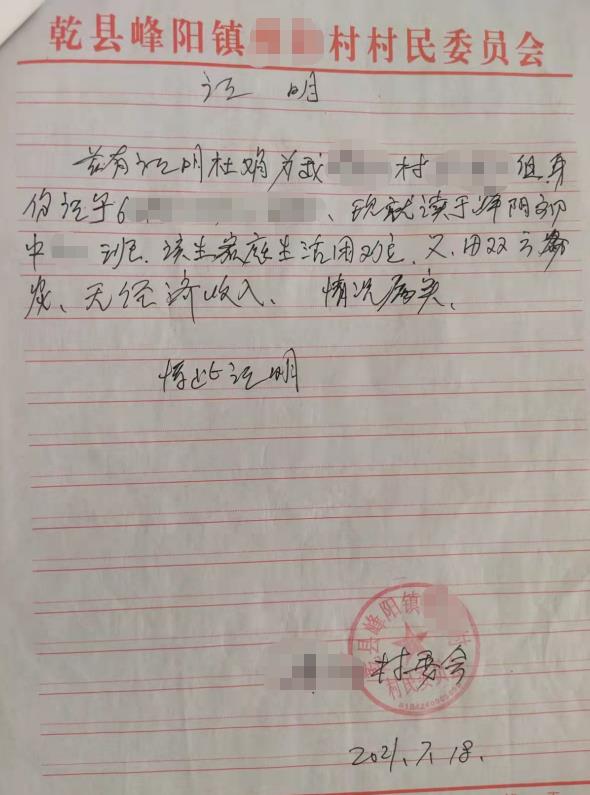 乾县峰阳镇 村村民委员会
证 明
兹有证明杜娟为我 村 组 身
份证号6 、现就读于峰阳初
中 班. 该生家庭生活困难, 父.母双亡
无经济收入、情况属实、
特此证明
乾县峰阳镇
村民委员
村委会
2021.7.18.